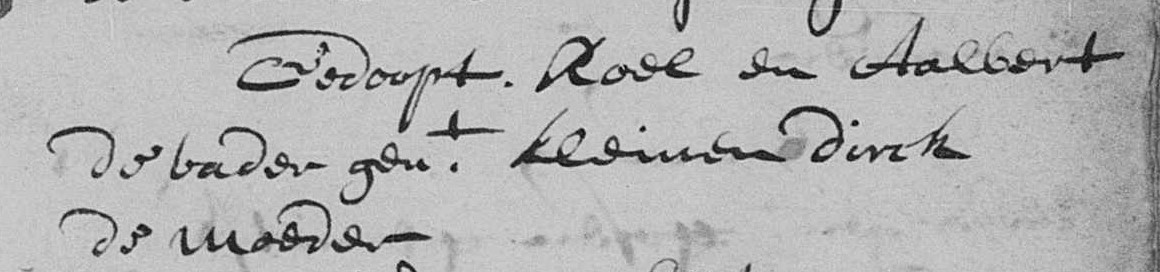 Gedoopt. Roel en Aalbert
de vader gen.t kleinen Dirck
de moeder